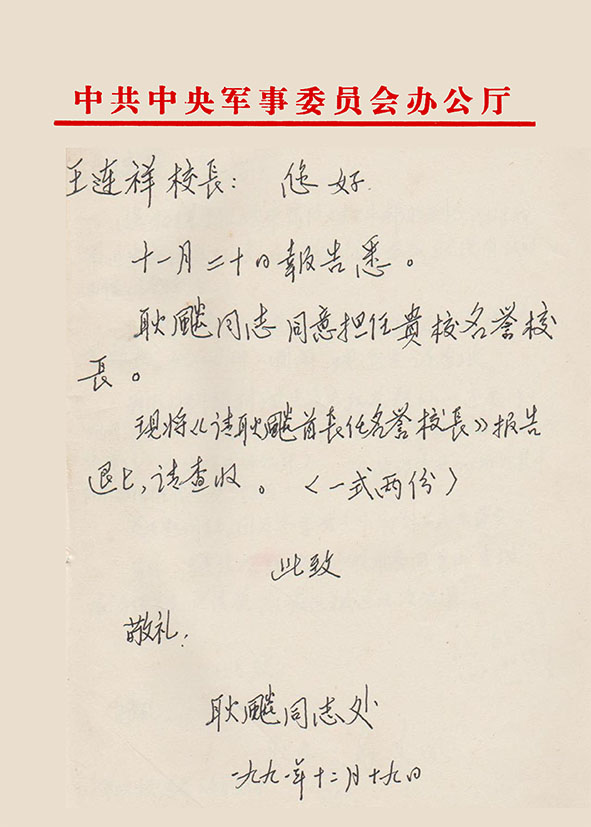 中共中央军事委员会办公厅
王连祥校長： 您好.
十一月二十日報告悉。
耿飚同志同意担任貴校名誉校
長。
现将《请耿飚首長任名誉校長》报告
退上，请查收。〈一式两份〉
此致
敬礼！
耿飚同志处
一九九一年十二月十九日